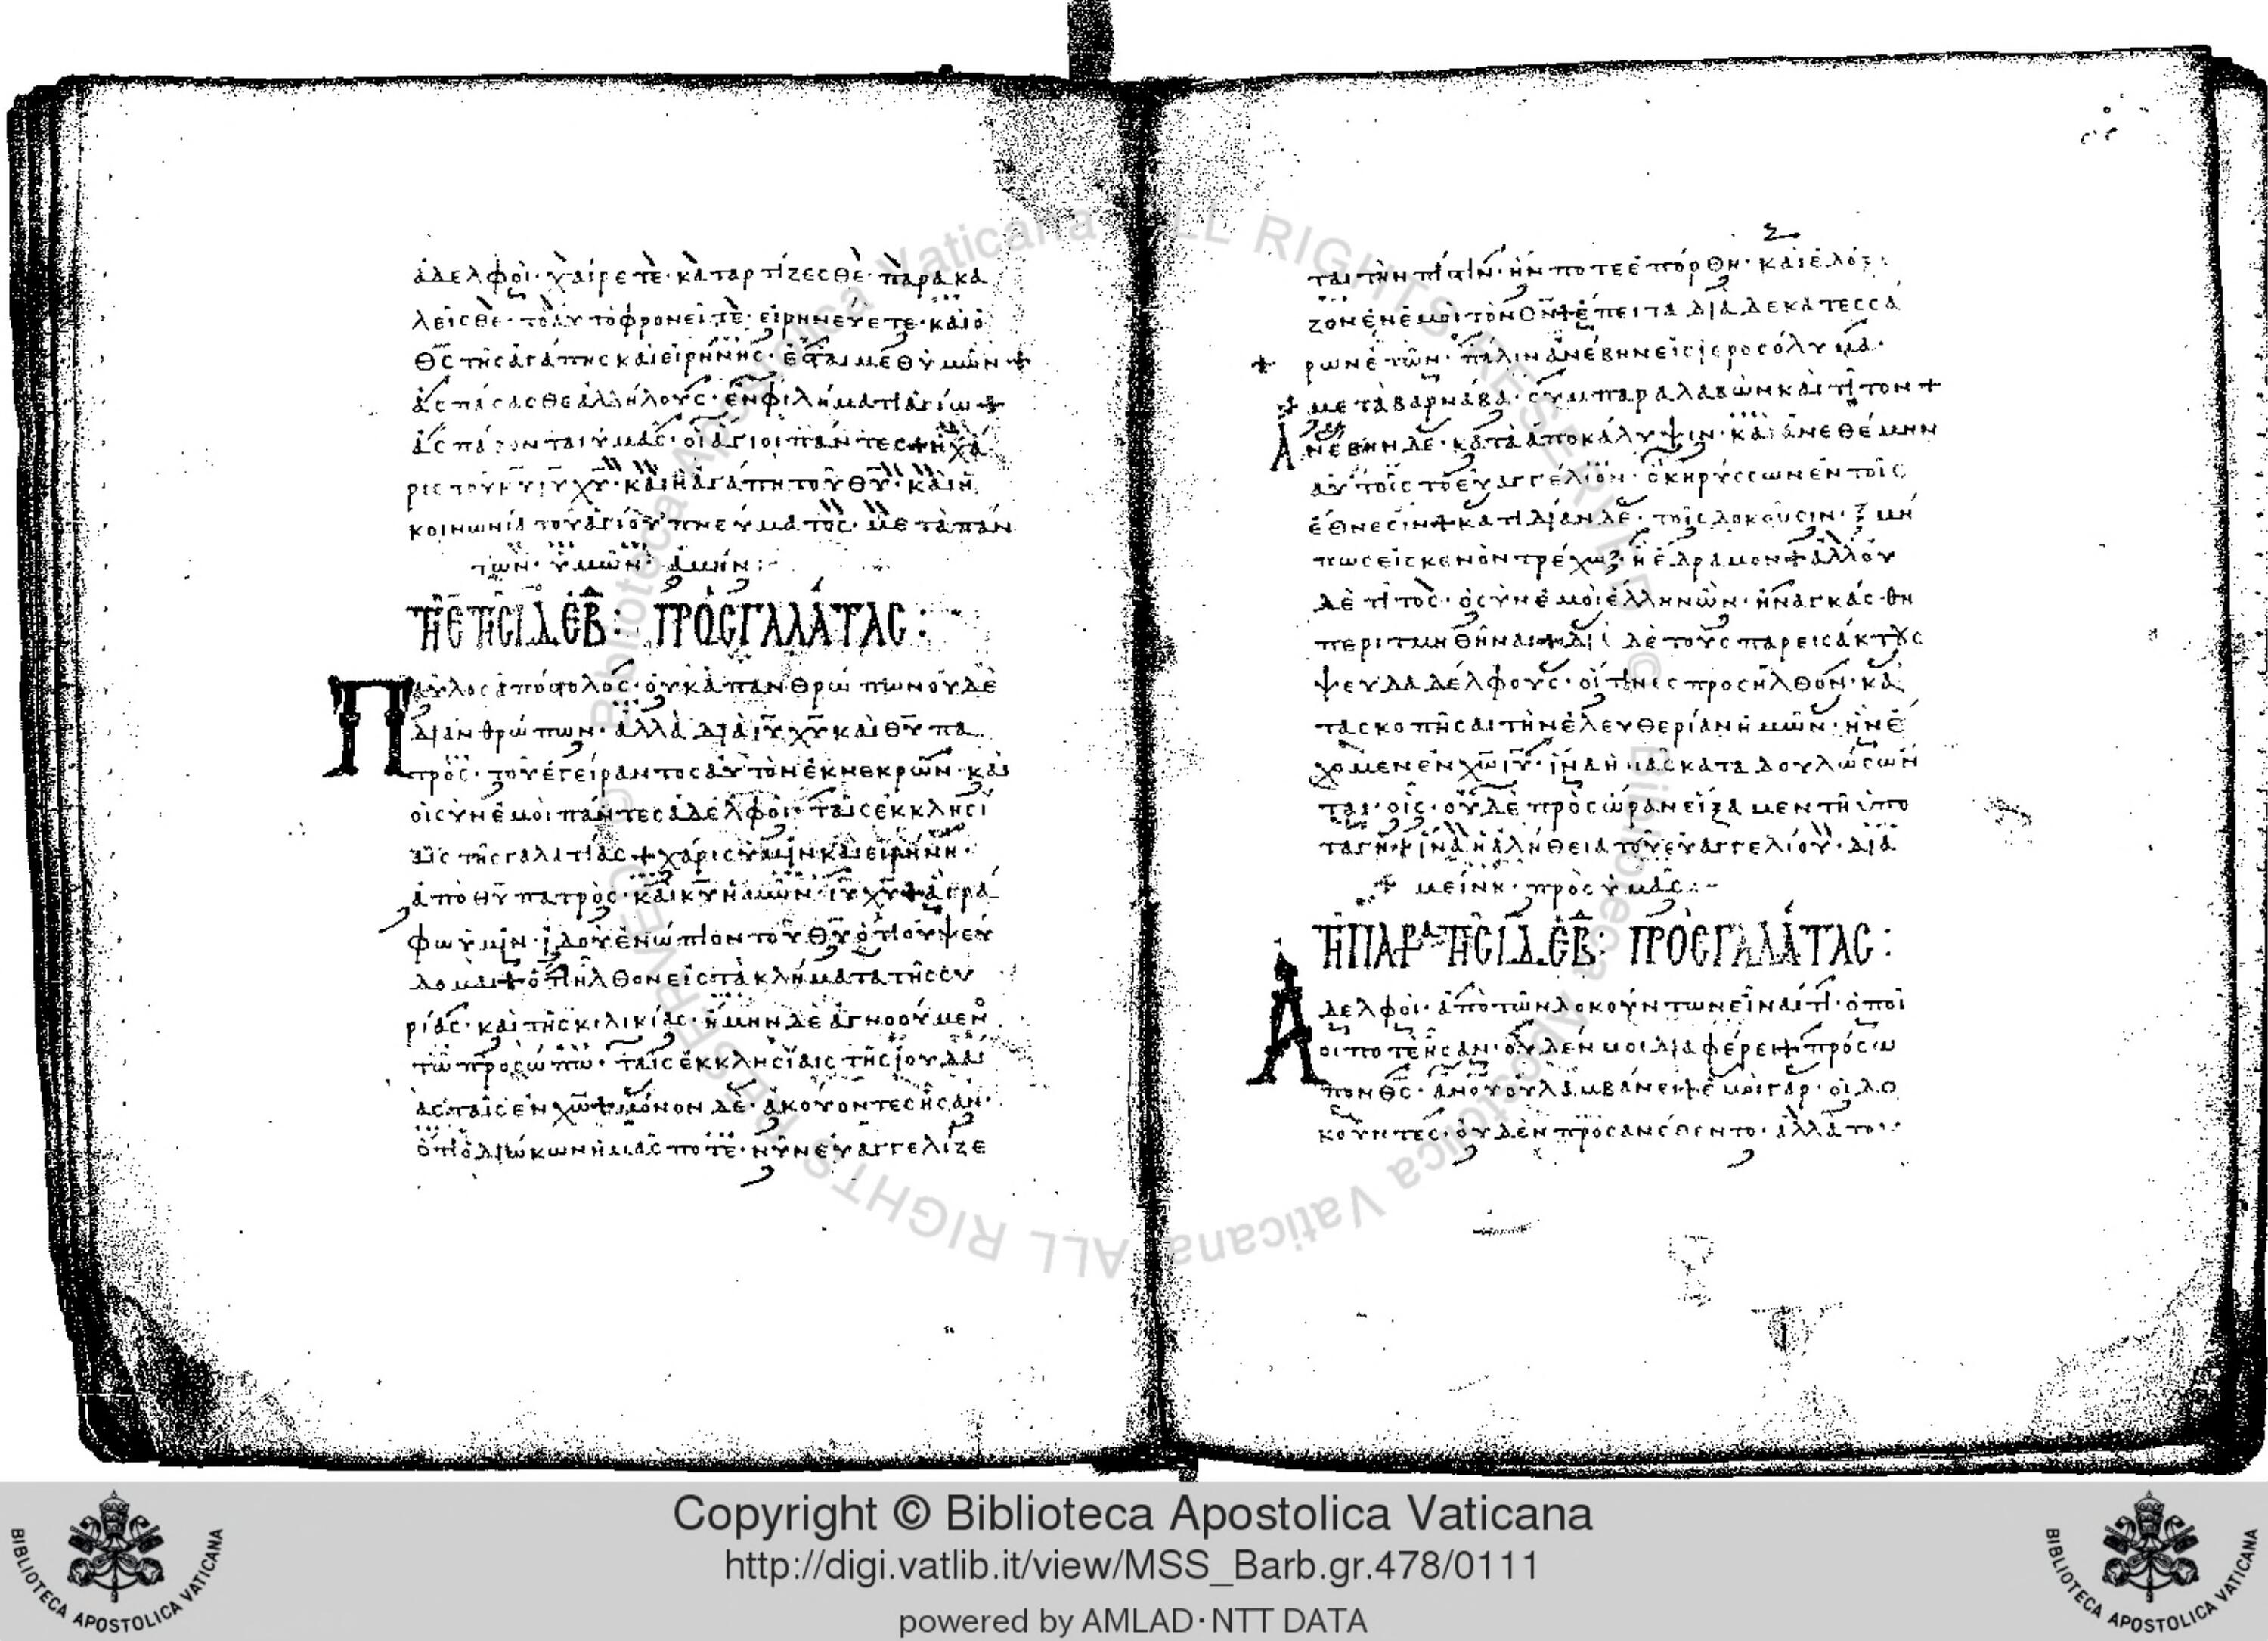 ἀδελφοὶ· χαίρετε· καταρτίζεσθε· παρακα
λεῖσθε· τὸ αὐτὸ φρονεῖτε· εἰρηνεύετε· καὶ ὁ
θς τῆς ἀγάπης καὶ εἰρήνης· ἔσται μεθ' ὑμῶν +
ἀσπάσασθε ἀλλήλους· ἐν φιλήματι ἁγίω +
ἀσπάζονται ὑμᾶς· οἱ ἅγιοι πάντες + ἡ χά
ρις τοῦ κυ ιυ χυ· καὶ ἡ ἀγάπη τοῦ θυ· καὶ ἡ
κοινωνία τοῦ ἁγίου πνεύματος· μετὰ πάν
των· ὑμῶν· ἀμήν:-
ΠΡΟΣ ΓΑΛΑΤΑΣ:
Παῦλος ἀπόστολος· οὐκ ἀπ' ἀνθρώπων οὐδὲ
δι' ἀνθρώπων· ἀλλὰ διὰ ιυ χυ καὶ θυ πα
τρὸς· τοῦ ἐγείραντος αὐτὸν ἐκ νεκρῶν· καὶ
οἱ σὺν ἐμοὶ πάντες ἀδελφοὶ· ταῖς ἐκκλησί
αις τῆς γαλατίας + χάρις ὑμῖν καὶ εἰρήνη·
ἀπὸ θυ πατρὸς· καὶ κυ ἡμῶν ιυ χυ + ἃ γρά
φω ὑμῖν· ἰδοὺ ἐνώπιον τοῦ θυ ὅτι οὐ ψεύ
δομαι + ὅτι ἦλθον εἰς τὰ κλήματα τῆς συ
ρίας· καὶ τῆς κιλικίας· ἤμην δὲ ἀγνοούμεν
τῶ προσώπω· ταῖς ἐκκλησίαις τῆς ἰουδαί
ας ταῖς ἐν χω + μόνον δὲ· ἀκούοντες ἦσαν·
ὅτι ὁ διώκων ἡμᾶς ποτὲ· νῦν εὐαγγελίζε
ται τὴν πίστιν· ἥν ποτε ἐπόρθη· καὶ ἐδόξα
ζον ἐν ἐμοὶ τὸν θν + ἔπειτα διὰ δεκατεσσά
ρων ἐτῶν· πάλιν ἀνέβην εἰς ἱεροσόλυμα·
μετὰ βαρνάβα· συμπαραλαβὼν καὶ τίτον +
Ἀνέβην δὲ· κατὰ ἀποκάλυψιν· καὶ ἀνεθέμην
αὐτοῖς τὸ εὐαγγέλιον· ὃ κηρύσσων ἐν τοῖς
ἔθνεσιν + κατ' ἰδίαν δὲ· τοῖς δοκοῦσιν· μή
πως εἰς κενὸν τρέχω· ἢ ἔδραμον + ἀλλ' οὐ
δὲ τίτος· ὁ σὺν ἐμοὶ ἕλλην ὢν· ἠναγκάσθη
περιτμηθῆναι + διὰ δὲ τοὺς παρεισάκτους
ψευδαδέλφους· οἵτινες προσῆλθον· κα
τασκοπῆσαι τὴν ἐλευθερίαν ἡμῶν· ἣν ἔ
χομεν ἐν χω ιυ· ἵνα ἡμᾶς καταδουλώσων
ται· οἷς· οὐδὲ πρὸς ὥραν εἴξαμεν τῆ ὑπο
ταγῆ + ἵνα ἡ ἀλήθεια τοῦ εὐαγγελίου· δια
μείνη· πρὸς ὑμᾶς:-
ΠΡΟΣ ΓΑΛΑΤΑΣ:
Ἀδελφοὶ· ἀπὸ τῶν δοκούντων εἶναί τι· ὁποῖ
οί ποτε ἦσαν· οὐδέν μοι διαφέρει + πρόσω
πον θς· ἀνου οὐ λαμβάνει + ἐμοὶ γὰρ· οἱ δο
κοῦντες· οὐδὲν προσανέθεντο· ἀλλὰ του
Copyright © Biblioteca Apostolica Vaticana
http://digi.vatlib.it/view/MSS_Barb.gr.478/0111
powered by AMLAD·NTT DATA
BIBLIOTECA APOSTOLICA VATICANA
BIBLIOTECA APOSTOLICA VATICANA